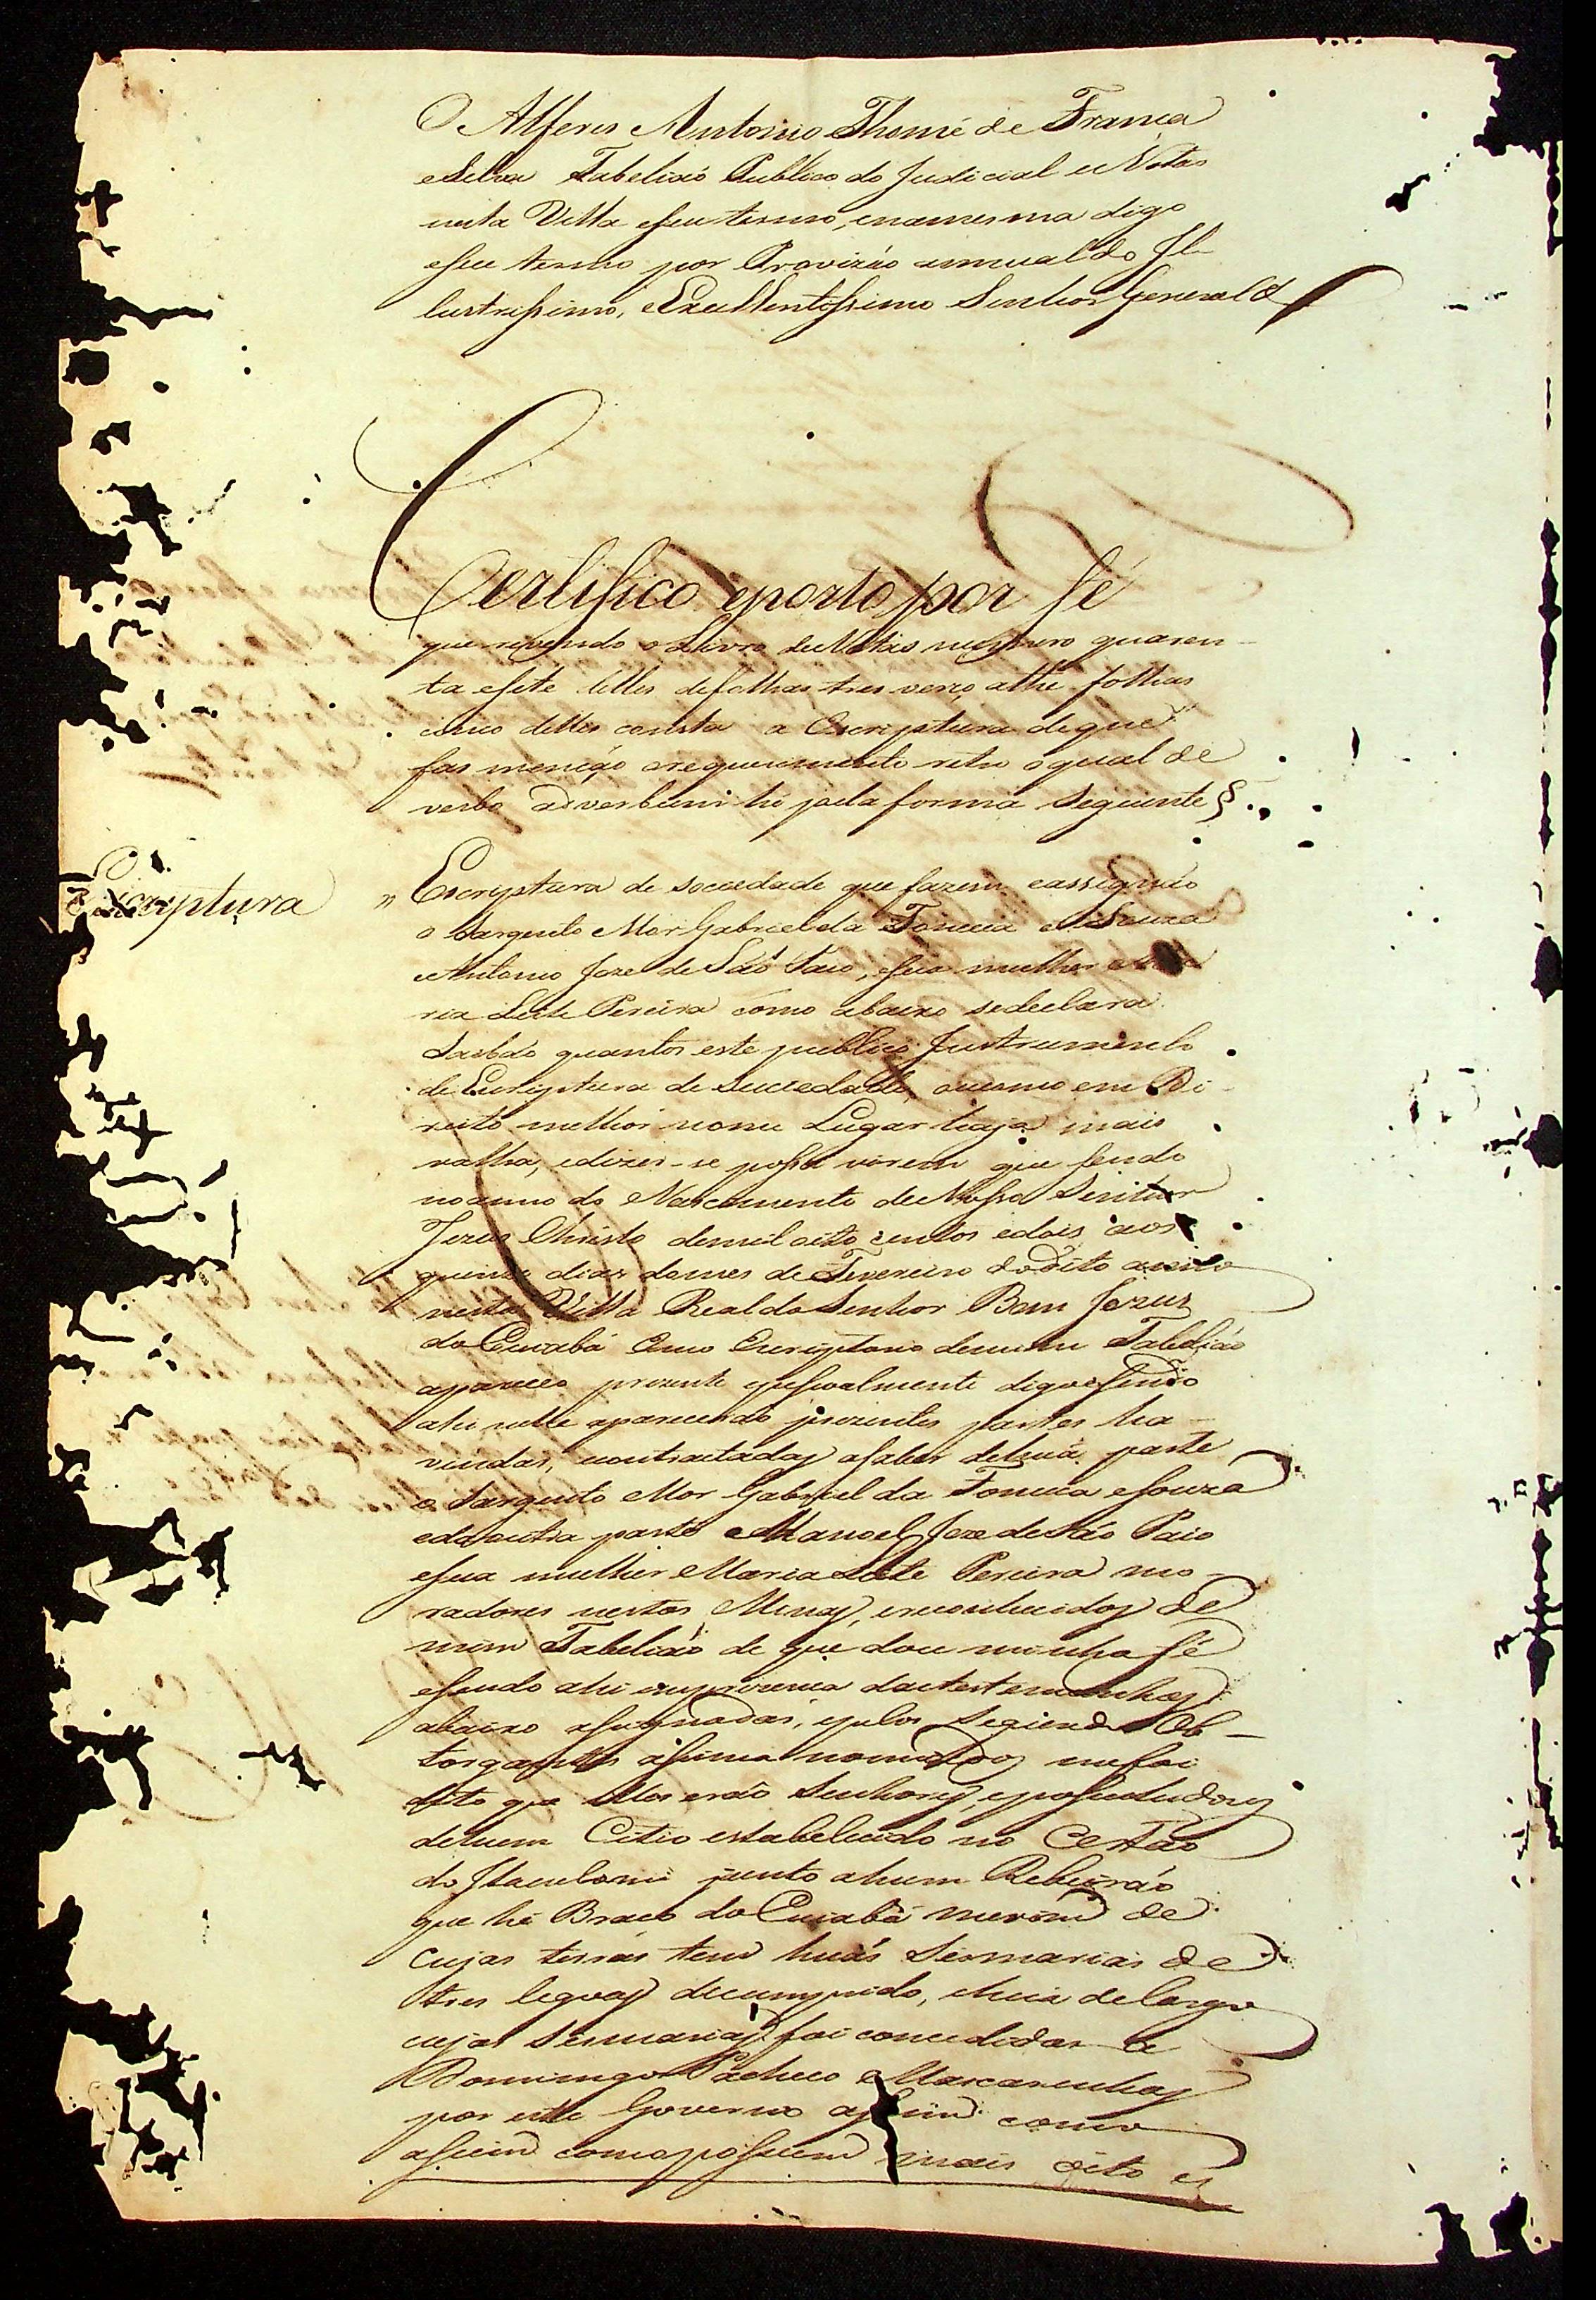 O Alferes Antonio Thomé de França
eSilva Tabeliaõ Publico do Judicial e Notas
nesta Villa eseu termo, enamesma digo
eseu termo por Provizáo annual do Il-
lustrissimo, eExcellentissimo Senhor General &
Certifico eporto por fé
que revendo o Livro de Notas numero quaren-
ta esete delles defolhas tres verço athe folhas
cinco delles consta a Escriptura deque
fas mençáo orequerimento retro oqual de
verbo adverbum hé pela forma Seguinte §.
Escriptura
" Escriptura de sociedade que fazem eassignáo
o Sargento Mor Gabriel da Fonceca e Souza
Antonio Joze de Saõ Paio, esua mulher Ma
ria Leite Pereira como abaixo sedeclara
Saibáo quantos este publico Instrumento
de Escriptura de sociedade, oucomo em Di-
reito melhor nome Lugar haja mais
valha, edizer-se possa virem que sendo
noanno do Nascimento de Nosso Senhor
Jezus Christo demil oito centos edois aos
quinze dias domes de Fevereiro dodito anno
nesta Villa Real do Senhor Bom Jezus
do Cuiabá emo Escriptorio demim Tabeliáo
apareceo prezente epesoalmente digo esendo
ahi nelle aparecerão prezentes partes ha-
vindas, econtractadas asaber dehuá parte
o Sargento Mor Gabriel da Fonceca eSouza
edaoutra parte Manoel Joze deSáo Paio
esua mulher Maria Leite Pereira mo-
radores nestas Minas, ereconhecidos de
mim Tabeliaõ de que dou minha fé
esendo ahi emprezença dastestemunhas
abaixo asignadas, epelos Segundos Ou-
torgantes asima nomiados mefoi
dito que elles eraõ Senhores, eposuidores
dehum Citio estabelecido no Certáo
do Itacolomi junto ahum Ribeiráo
que hé Braço do Cuiabá merim de
cujas terras tem huás Sesmarias de
tres legoas decumprido, ehua delargo
cujas Sesmarias foi concedidas a
Domingos Pacheco Mascarenhas
por este Governo assim como
assim comopossuem mais oito es